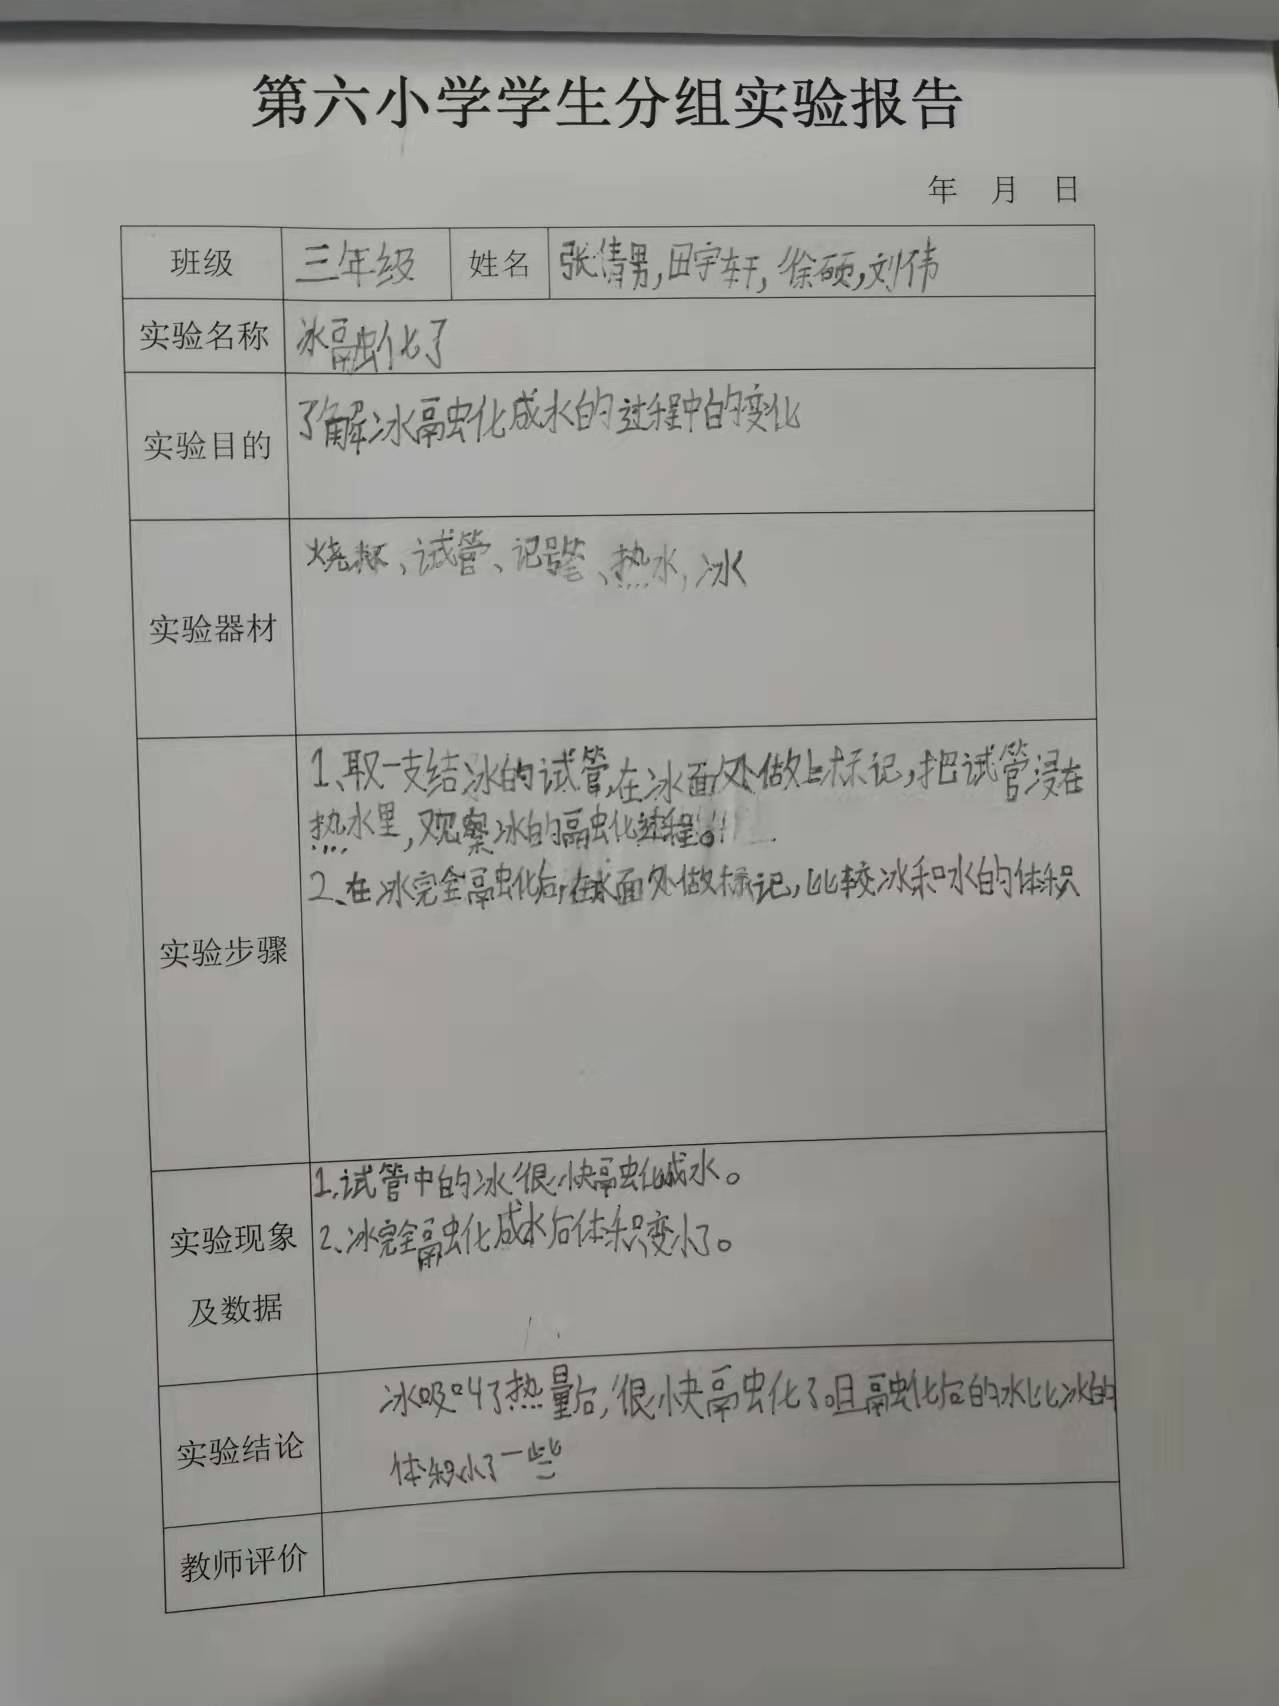 第六小学学生分组实验报告
年 月 日
班级 三年级 姓名 张倩男,田宇轩,徐硕,刘伟
实验名称 冰融化了
实验目的 了解冰融化成水的过程中的变化
实验器材 烧杯、试管、记号笔、热水,冰
1、取一支结冰的试管,在冰面处做上标记,把试管浸在
热水里,观察冰的融化过程。
2、在冰完全融化后,在水面处做标记,比较冰和水的体积
实验步骤
1、试管中的冰很快融化成水。
2、冰完全融化成水后体积变小了。
实验现象
及数据
冰吸收了热量后,很快融化了但融化后的水比冰的
体积小了一些
实验结论
教师评价